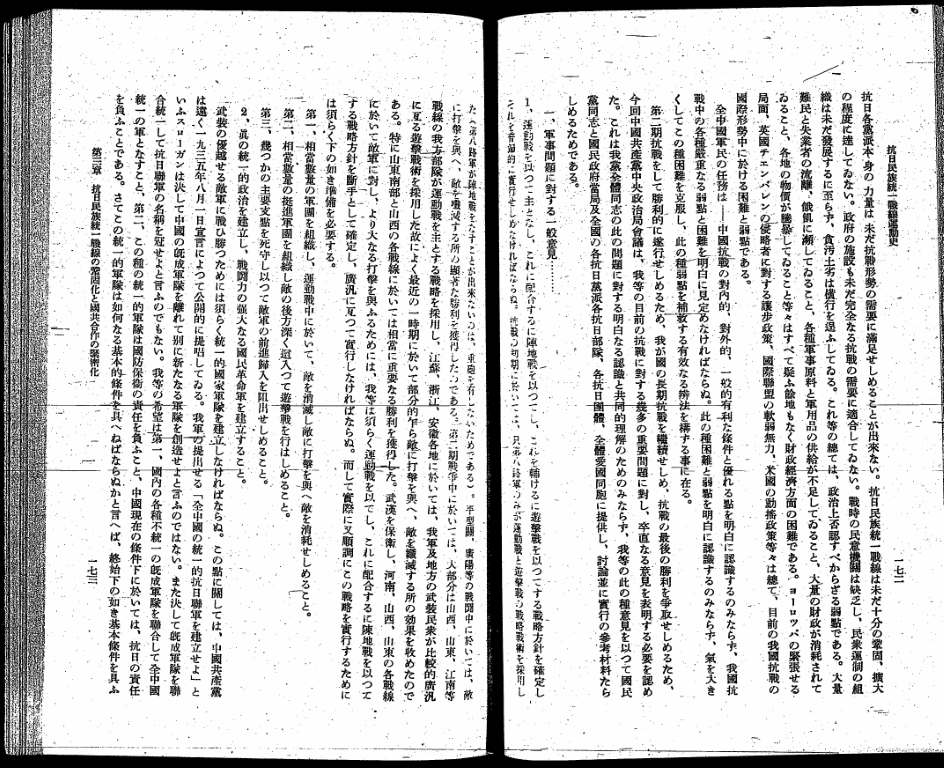 抗日民族統一戰線運動史
一七二
抗日各黨派本身の力量は未だ抗戰形勢の需要に滿足せしめることが出來ない。抗日民族統一戰線は未だ十分の鞏固、擴大
の程度に達してゐない。政府の施設も未だ完全なる抗戰の需要に適合してゐない。戰時の民意機關は缺乏し、民衆運動の組
織は未だ發展するに至らず、貪汚土劣は橫行を逞ふしてゐる。これ等の總ては、政治上否認すべからざる弱點である。大量
難民と失業者の流離、饑飢に瀕してゐること、各種軍事原料と軍用品の供給が不足してゐること、大量の財政が消耗されて
ゐること、各地の物價が騰暴してゐること等々はすべて疑ふ餘地もなく財政經濟方面の困難である。ヨーロツパの緊張せる
局面、英國チエンバレンの侵略者に對する讓步政策、國際聯盟の軟弱無力、米國の動搖政策等々は總て、目前の我國抗戰の
國際形勢中に於ける困難と弱點である。
全中國軍民の任務は――中國抗戰の對內的、對外的、一般的有利な條件と優れる點を明白に認識するのみならず、我國抗
戰中の各種嚴重なる弱點と困難を明白に見定めなければならぬ。此の種困難と弱點を明白に認識するのみならず、氣を大き
くしてこの種困難を克服し、此の種弱點を補救する有效なる辦法を構ずる事に在る。
第二期抗戰をして勝利的に遂行せしめるため、我が國の長期抗戰を繼續せしめ、抗戰の最後の勝利を爭取せしめるため、
今回中國共產黨中央政治局會議は、我等の目前の抗戰に對する幾多の重要問題に對し、卒直なる意見を表明する必要を認め
た。これは我黨全體同志のこの問題に對する明白なる認識と共同的理解のためのみならず、我等の此の種意見を以つて國民
黨同志と國民政府當局及全國の各抗日黨派各抗日部隊、各抗日團體、全體愛國同胞に提供し、討論並に實行の參考材料たら
しめるためである。
一、軍事問題に對する一般意見……
1、運動戰を以つて主となし、これに配合するに陣地戰を以つてし、これを輔けるに遊擊戰を以つてする戰略方針を確定し
に打擊を與へ、敵を殲滅する所の顯著な勝利を獲得したのである。第二期戰爭中に於いては、大部分は山西、山東、江南等
戰線の我方部隊が運動戰を主とする戰略を採用し、江蘇、浙江、安徽各地に於いては、我軍及地方の武裝民衆が比較的廣汎
に亙る遊擊戰術を採用した故によく最近の一時期に於いて部分的乍ら敵に打擊を與へ、敵を殲滅する所の效果を收めたので
ある。特に山東南部と山西の各戰線に於いては相當に重要なる勝利を獲得した。武漢を保衞し、河南、山西、山東の各戰線
に於いて敵軍に對し、より大なる打擊を與ふるためには、我等は須らく運動戰を以てし、これに配合するに陣地戰を以つて
する戰略方針を斷乎として確定し、廣汎に亙つて實行しなければならぬ。而して實際に又順調にこの戰略を實行するために
は須らく下の如き準備を必要する。
第一、相當數量の軍團を組織し、運動戰中に於いて、敵を消滅し敵に打擊を與へ敵を消耗せしめること。
第二、相當數量の挺進軍團を組織し敵の後方深く迫入つて遊擊戰を行はしめること。
第三、幾つかの主要支點を死守し以つて敵軍の前進歸入を阻出せしめること。
2、眞の統一的政治を建立し、戰鬪力の強大なる國民革命軍を建立すること。
武裝の優越せる敵軍に戰ひ勝つためには須らく統一的國家軍隊を建立しなければならぬ。この點に關しては、中國共產黨
は遠く一九三五年八月一日宣言によつて公開的に提唱してゐる。我軍の提出せる「全中國の統一的抗日聯軍を建立せよ」と
いふスローガンは決して中國の旣成軍隊を離れて別に新たなる軍隊を創造せよと言ふのではない。また決して旣成軍隊を聯
合統一して抗日聯軍の名稱を冠せよと言ふのでもない。我等の希望は第一、國內の各種不統一の旣成軍隊を聯合して全中國
統一の軍となすこと、第二、この種の統一的軍隊は國防保衞の責任を負ふこと、中國現在の條件下に於いては、抗日の責任
を負ふことである。さてこの統一的軍隊は如何なる基本的條件を具へねばならぬかと言へば、終始下の如き基本條件を具ふ
第三章　抗日民族統一戰線の鞏固化と國共合作の緊密化
一七三